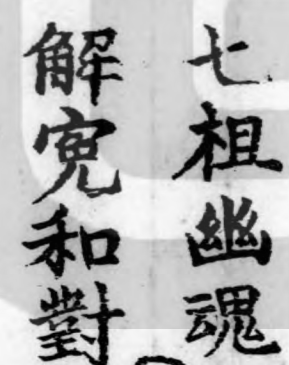 七祖幽魂
解寃和對